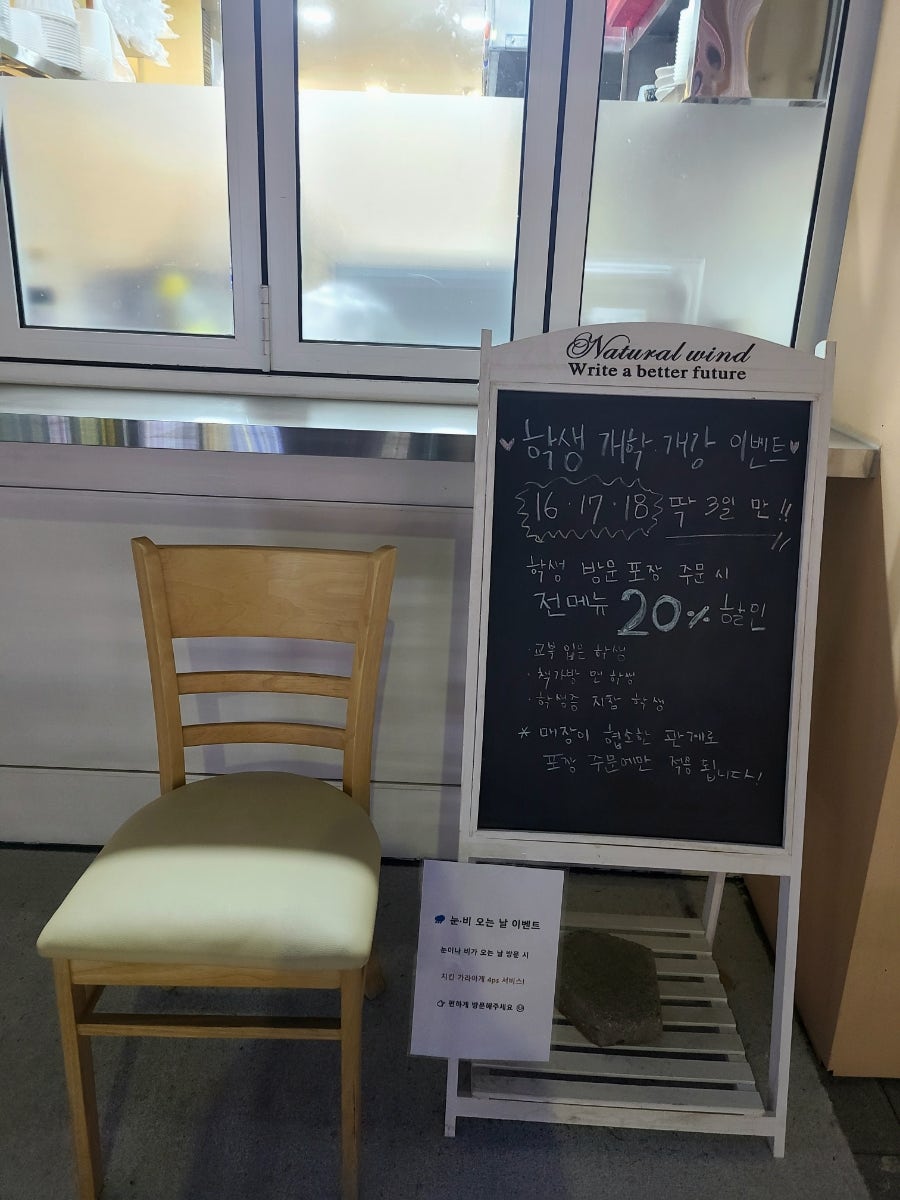 Natural wind
Write a better future
♥학생 개학·개강 이벤트♥
16·17·18 딱 3일 만!!
학생 방문 포장 주문 시
전메뉴 20% 할인
·교복 입은 학생
·책가방 멘 학생
·학생증 지참 학생
* 매장이 협소한 관계로
포장 주문에만 적용 됩니다!
🌧 눈·비 오는 날 이벤트
눈이나 비가 오는 날 방문 시
치킨 가라아게 4ps 서비스!
👉 편하게 방문해주세요 😊